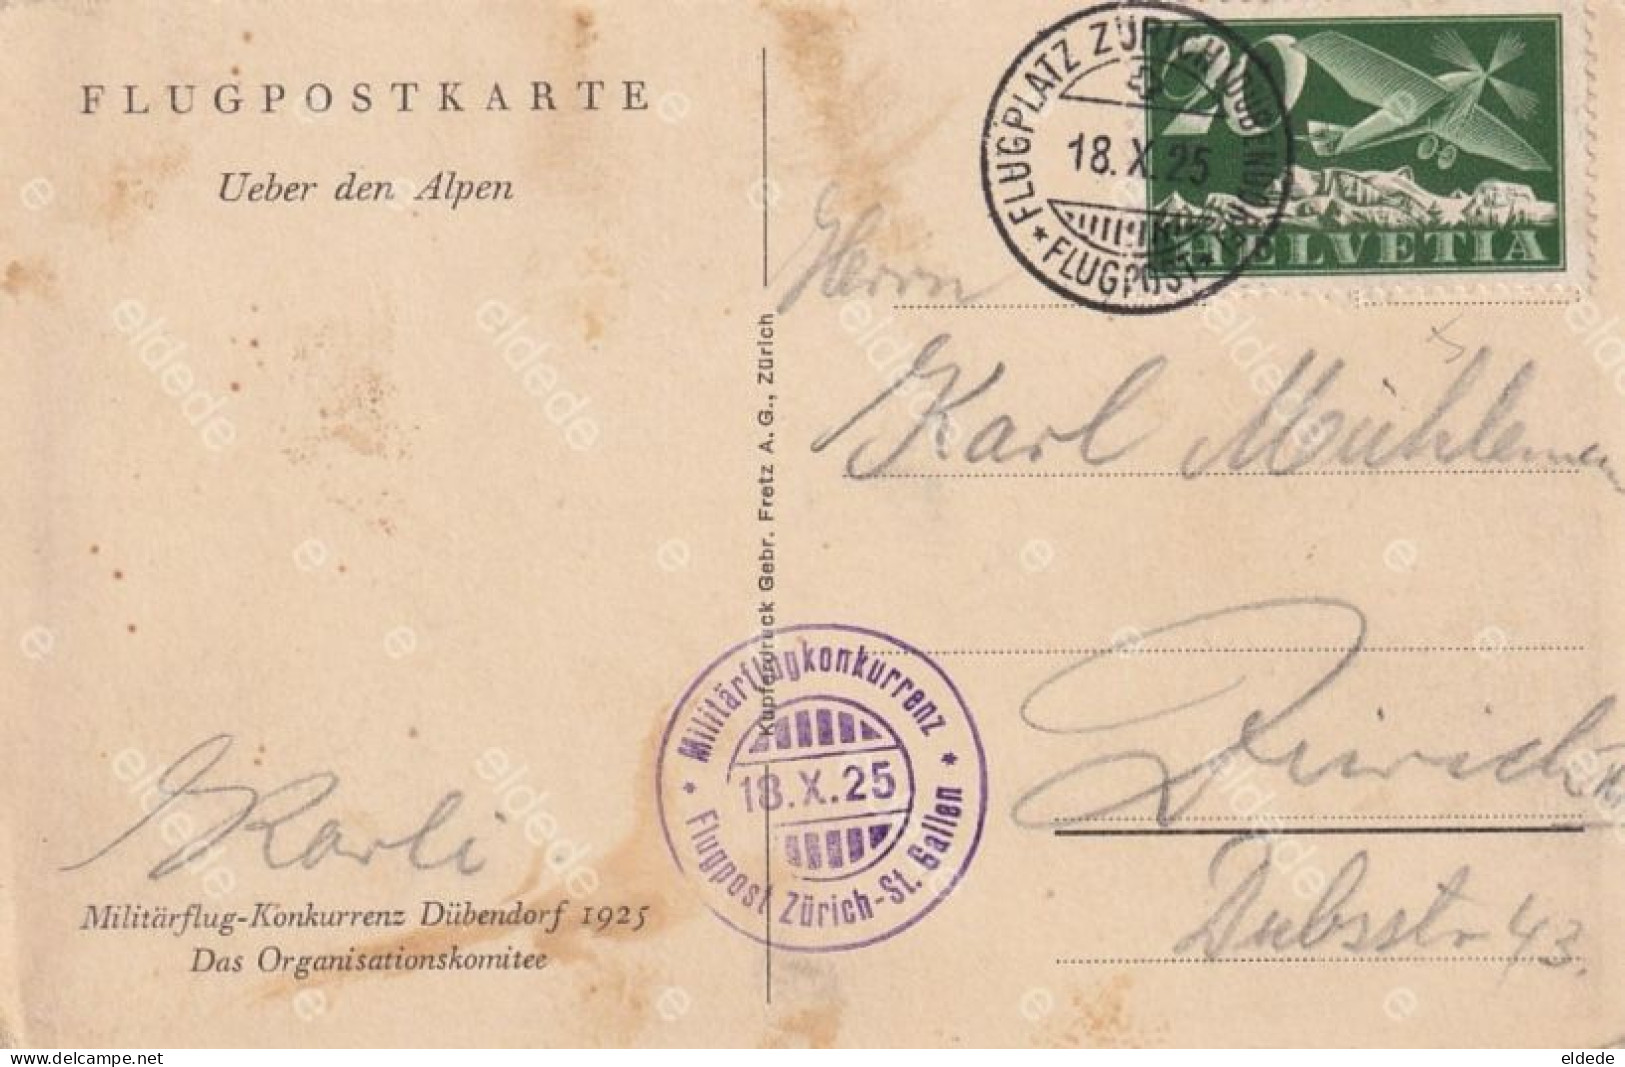 FLUGPOSTKARTE
Ueber den Alpen
FLUGPLATZ ZÜRICH (DÜBENDORF)
18.X.25
* FLUGPOST *
20
HELVETIA
Herrn
Karl Mühlemann
Zürich
Dubsstr 43.
Kupferdruck Gebr. Fretz A.G., Zürich
* Militärflugkonkurrenz *
18.X.25
Flugpost Zürich-St. Gallen
Karli
Militärflug-Konkurrenz Dübendorf 1925
Das Organisationskomitee
www.delcampe.net
eldede